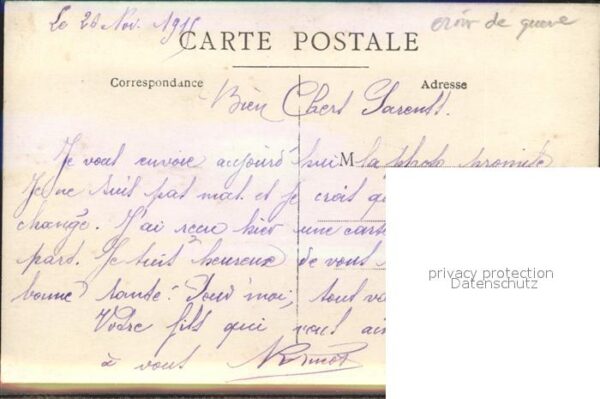 Le 26 Nov. 1915
croix de guerre
CARTE POSTALE
Correspondance
Adresse
Bien Chers Parents.
Je vous envoie aujourd'hui M la photo promise
Je ne suis pas mal et je crois
changé. J'ai reçu hier une carte
part. Je suis heureux de vous
bonne santé. Pour moi, tout va
Votre fils qui vous
à vous
privacy protection
Datenschutz